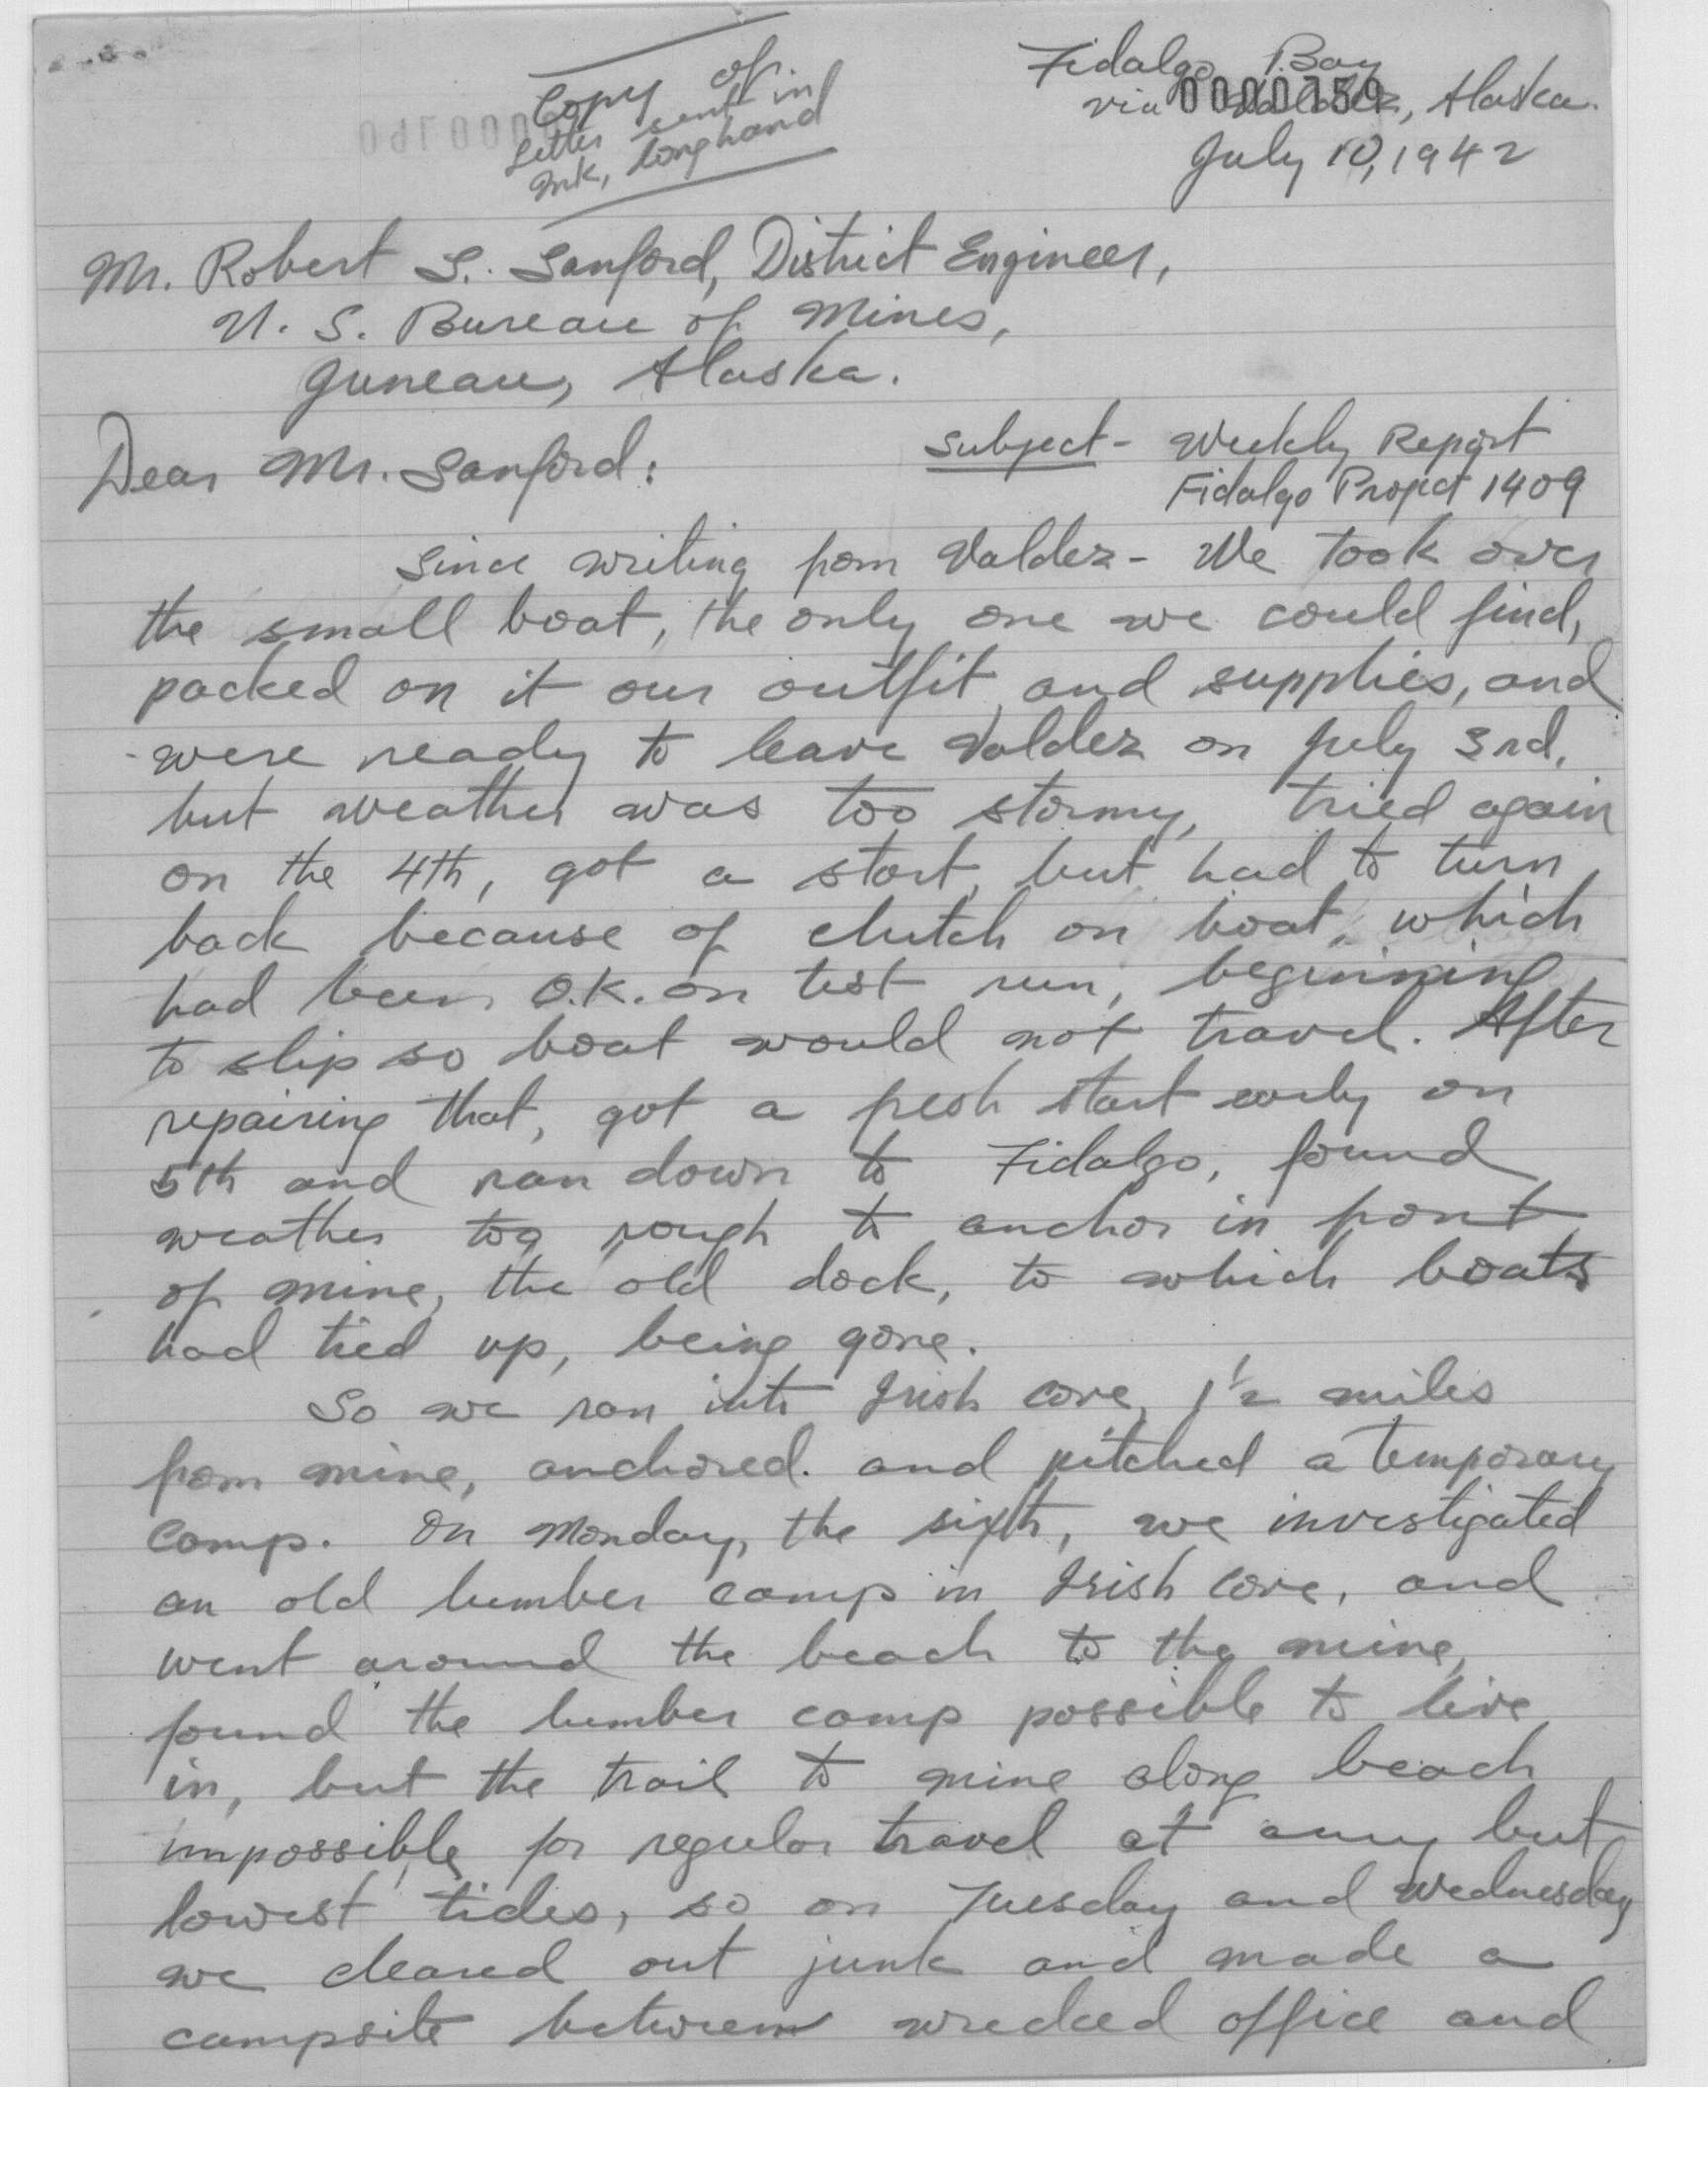 Copy of
Letter sent in
Ink, longhand
Fidalgo Bay
via Valdez, Alaska.
0000159
July 10, 1942
Mr. Robert S. Sanford, District Engineer,
U. S. Bureau of Mines,
Juneau, Alaska.
Subject - Weekly Report
Fidalgo Project 1409
Dear Mr. Sanford:
Since writing from Valdez - We took over
the small boat, the only one we could find,
packed on it our outfit and supplies, and
were ready to leave Valdez on July 3rd,
but weather was too stormy, tried again
on the 4th, got a start, but had to turn
back because of clutch on boat, which
had been O.K. on test run, beginning
to slip so boat would not travel. After
repairing that, got a fresh start early on
5th and ran down to Fidalgo, found
weather too rough to anchor in front
of mine, the old dock, to which boats
had tied up, being gone.
So we ran into Irish Cove, 1 1/2 miles
from mine, anchored. and pitched a temporary
camp. On Monday, the sixth, we investigated
an old lumber camp in Irish Cove, and
went around the beach to the mine,
found the lumber camp possible to live
in, but the trail to mine along beach
impossible for regular travel at any but
lowest tides, so on Tuesday and Wednesday
we cleared out junk and made a
campsite between wrecked office and